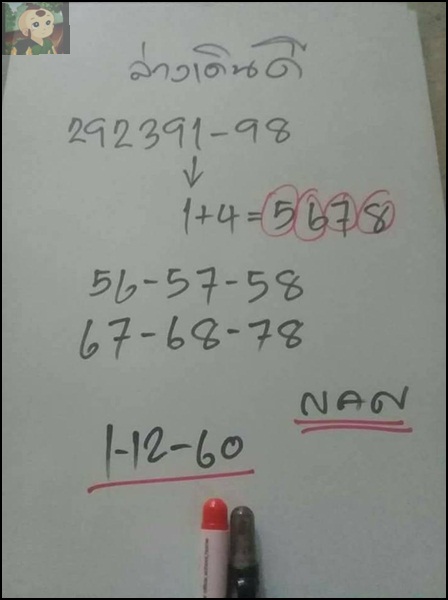 ล่างเดินดี
292391-98
↓
1+4=5678
56-57-58
67-68-78
1-12-60